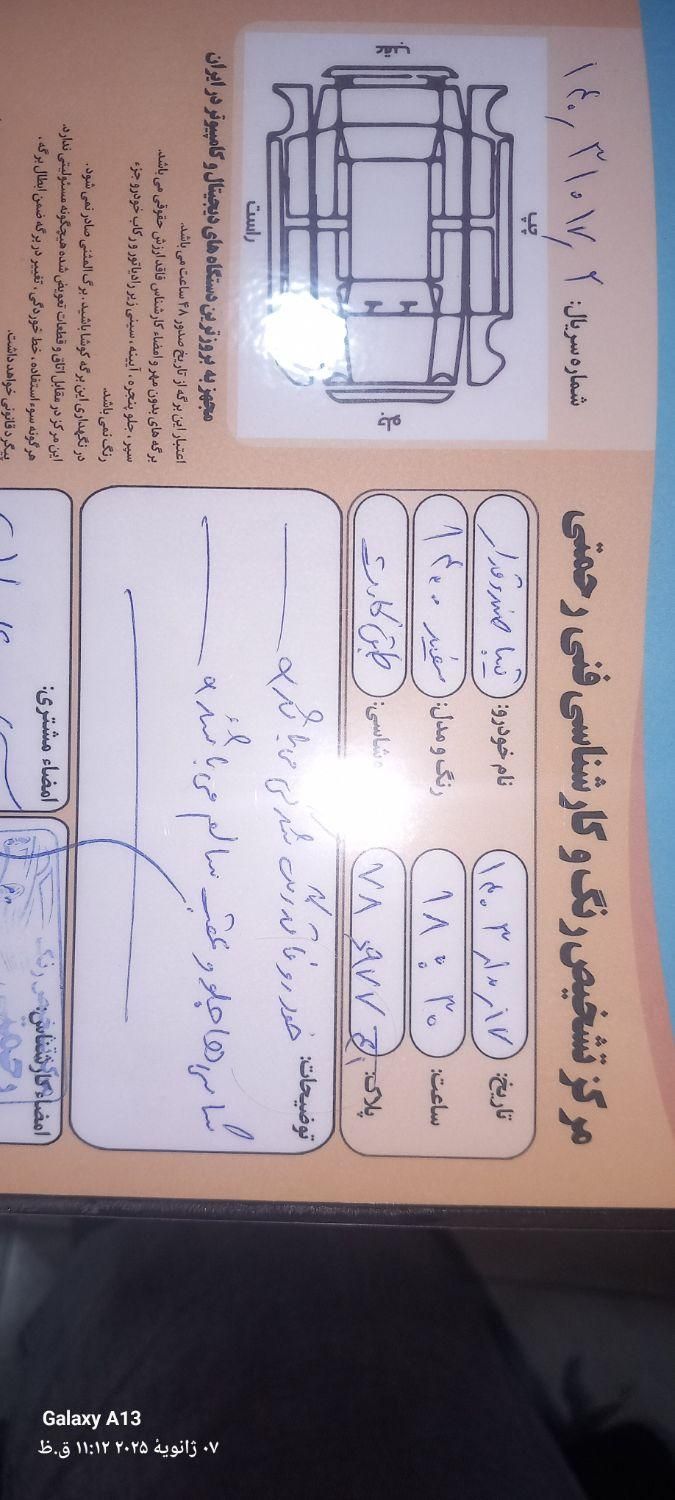 مرکز تشخیص رنگ و کارشناسی فنی رحمتی
شماره سریال:
چپ
عقب
جلو
راست
تاریخ:
نام خودرو: تیبا صندوقدار
ساعت: ۱۸:۳۰
رنگ و مدل: سفید ۱۴۰۰
پلاک:
شاسی: طبق کارت
توضیحات: خودرو فاقد رنگ شدگی می باشد
شاسی ها جلو و عقب سالم می باشد
مجهز به بروزترین دستگاه های دیجیتال و کامپیوتر در ایران
اعتبار این برگه از تاریخ صدور ۴۸ ساعت می باشد.
برگه های بدون مهر و امضاء کارشناس فاقد ارزش حقوقی می باشد.
سپر، جلو پنجره، آیینه، سینی زیر رادیاتور و رکاب خودرو جزء
رنگ نمی باشد.
در نگهداری این برگه کوشا باشید، برگ المثنی صادر نمی شود.
این مرکز در مقابل اتاق و قطعات تعویض شده هیچگونه مسئولیتی ندارد.
هر گونه سوء استفاده، خط خوردگی، تغییر در برگه ضمن ابطال برگه،
پیگرد قانونی خواهد داشت.
امضاء کارشناس:
امضاء مشتری:
Galaxy A13
۰۷ ژانویهٔ ۲۰۲۵ ۱۱:۱۲ ق.ظ